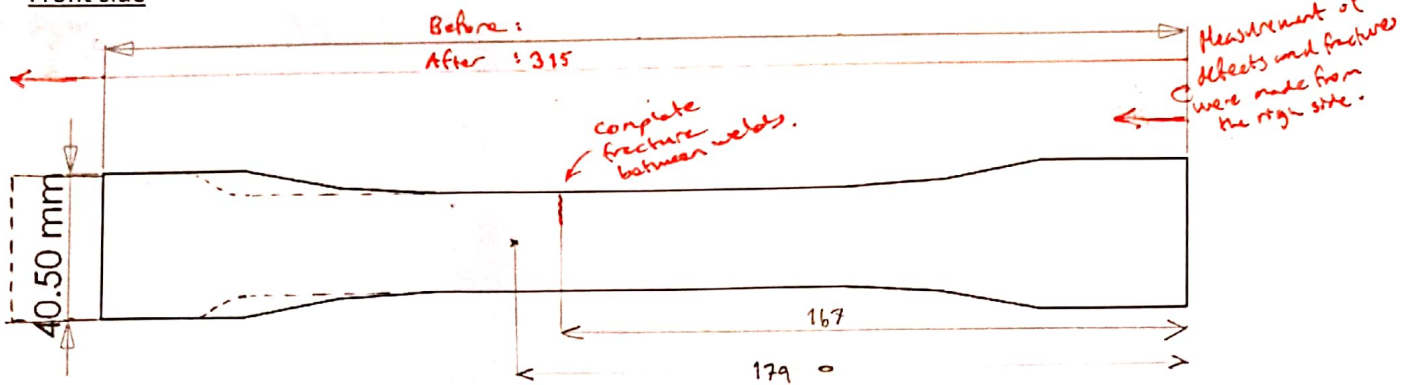 Front side
Before :
After : 315
Measurement of
defects and fractures
were made from
the righ side.
complete
fracture
between welds.
40.50 mm
167
179